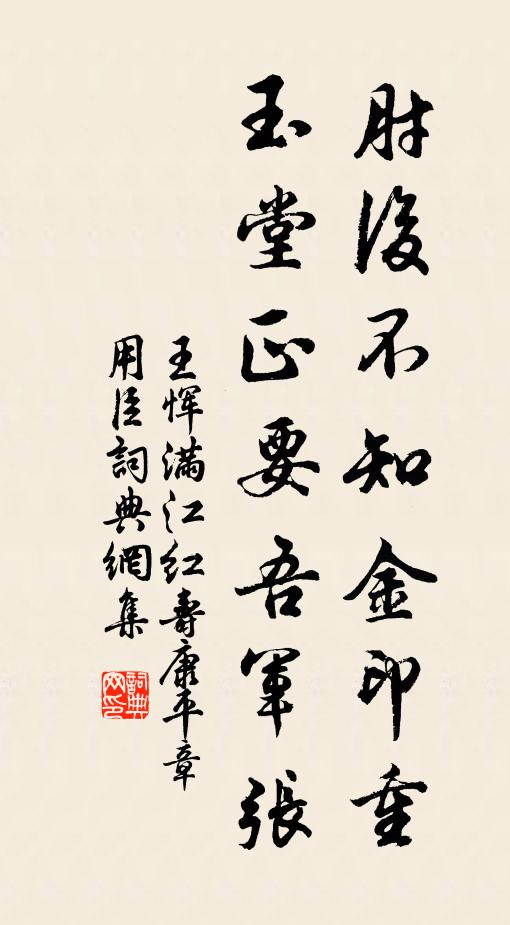 肘後不知金印重
玉堂正要吾軍張
王恽满江红壽康平章
用臣詞典網集
詞典网印